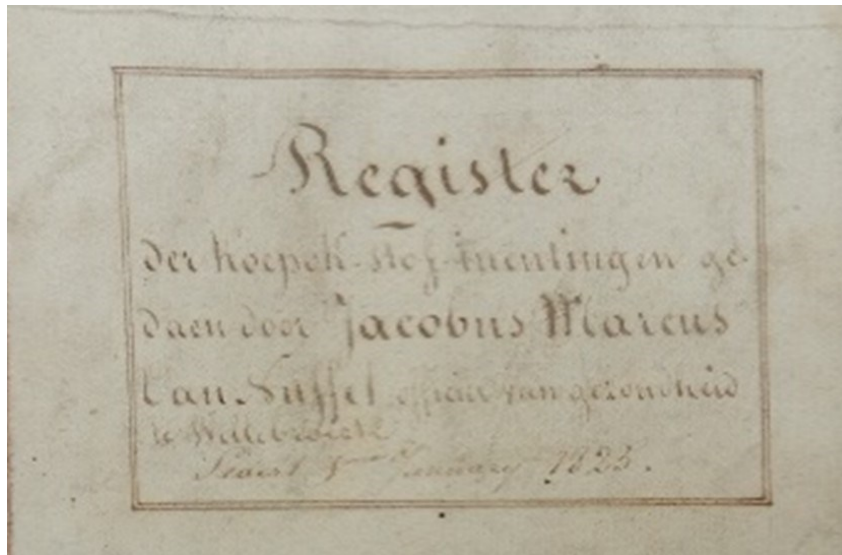 Register
der koepok-stof-inentingen ge-
daen door Jacobus Marcus
Van Nuffel officier van gezondheid
te Willebroeck
January 1825.